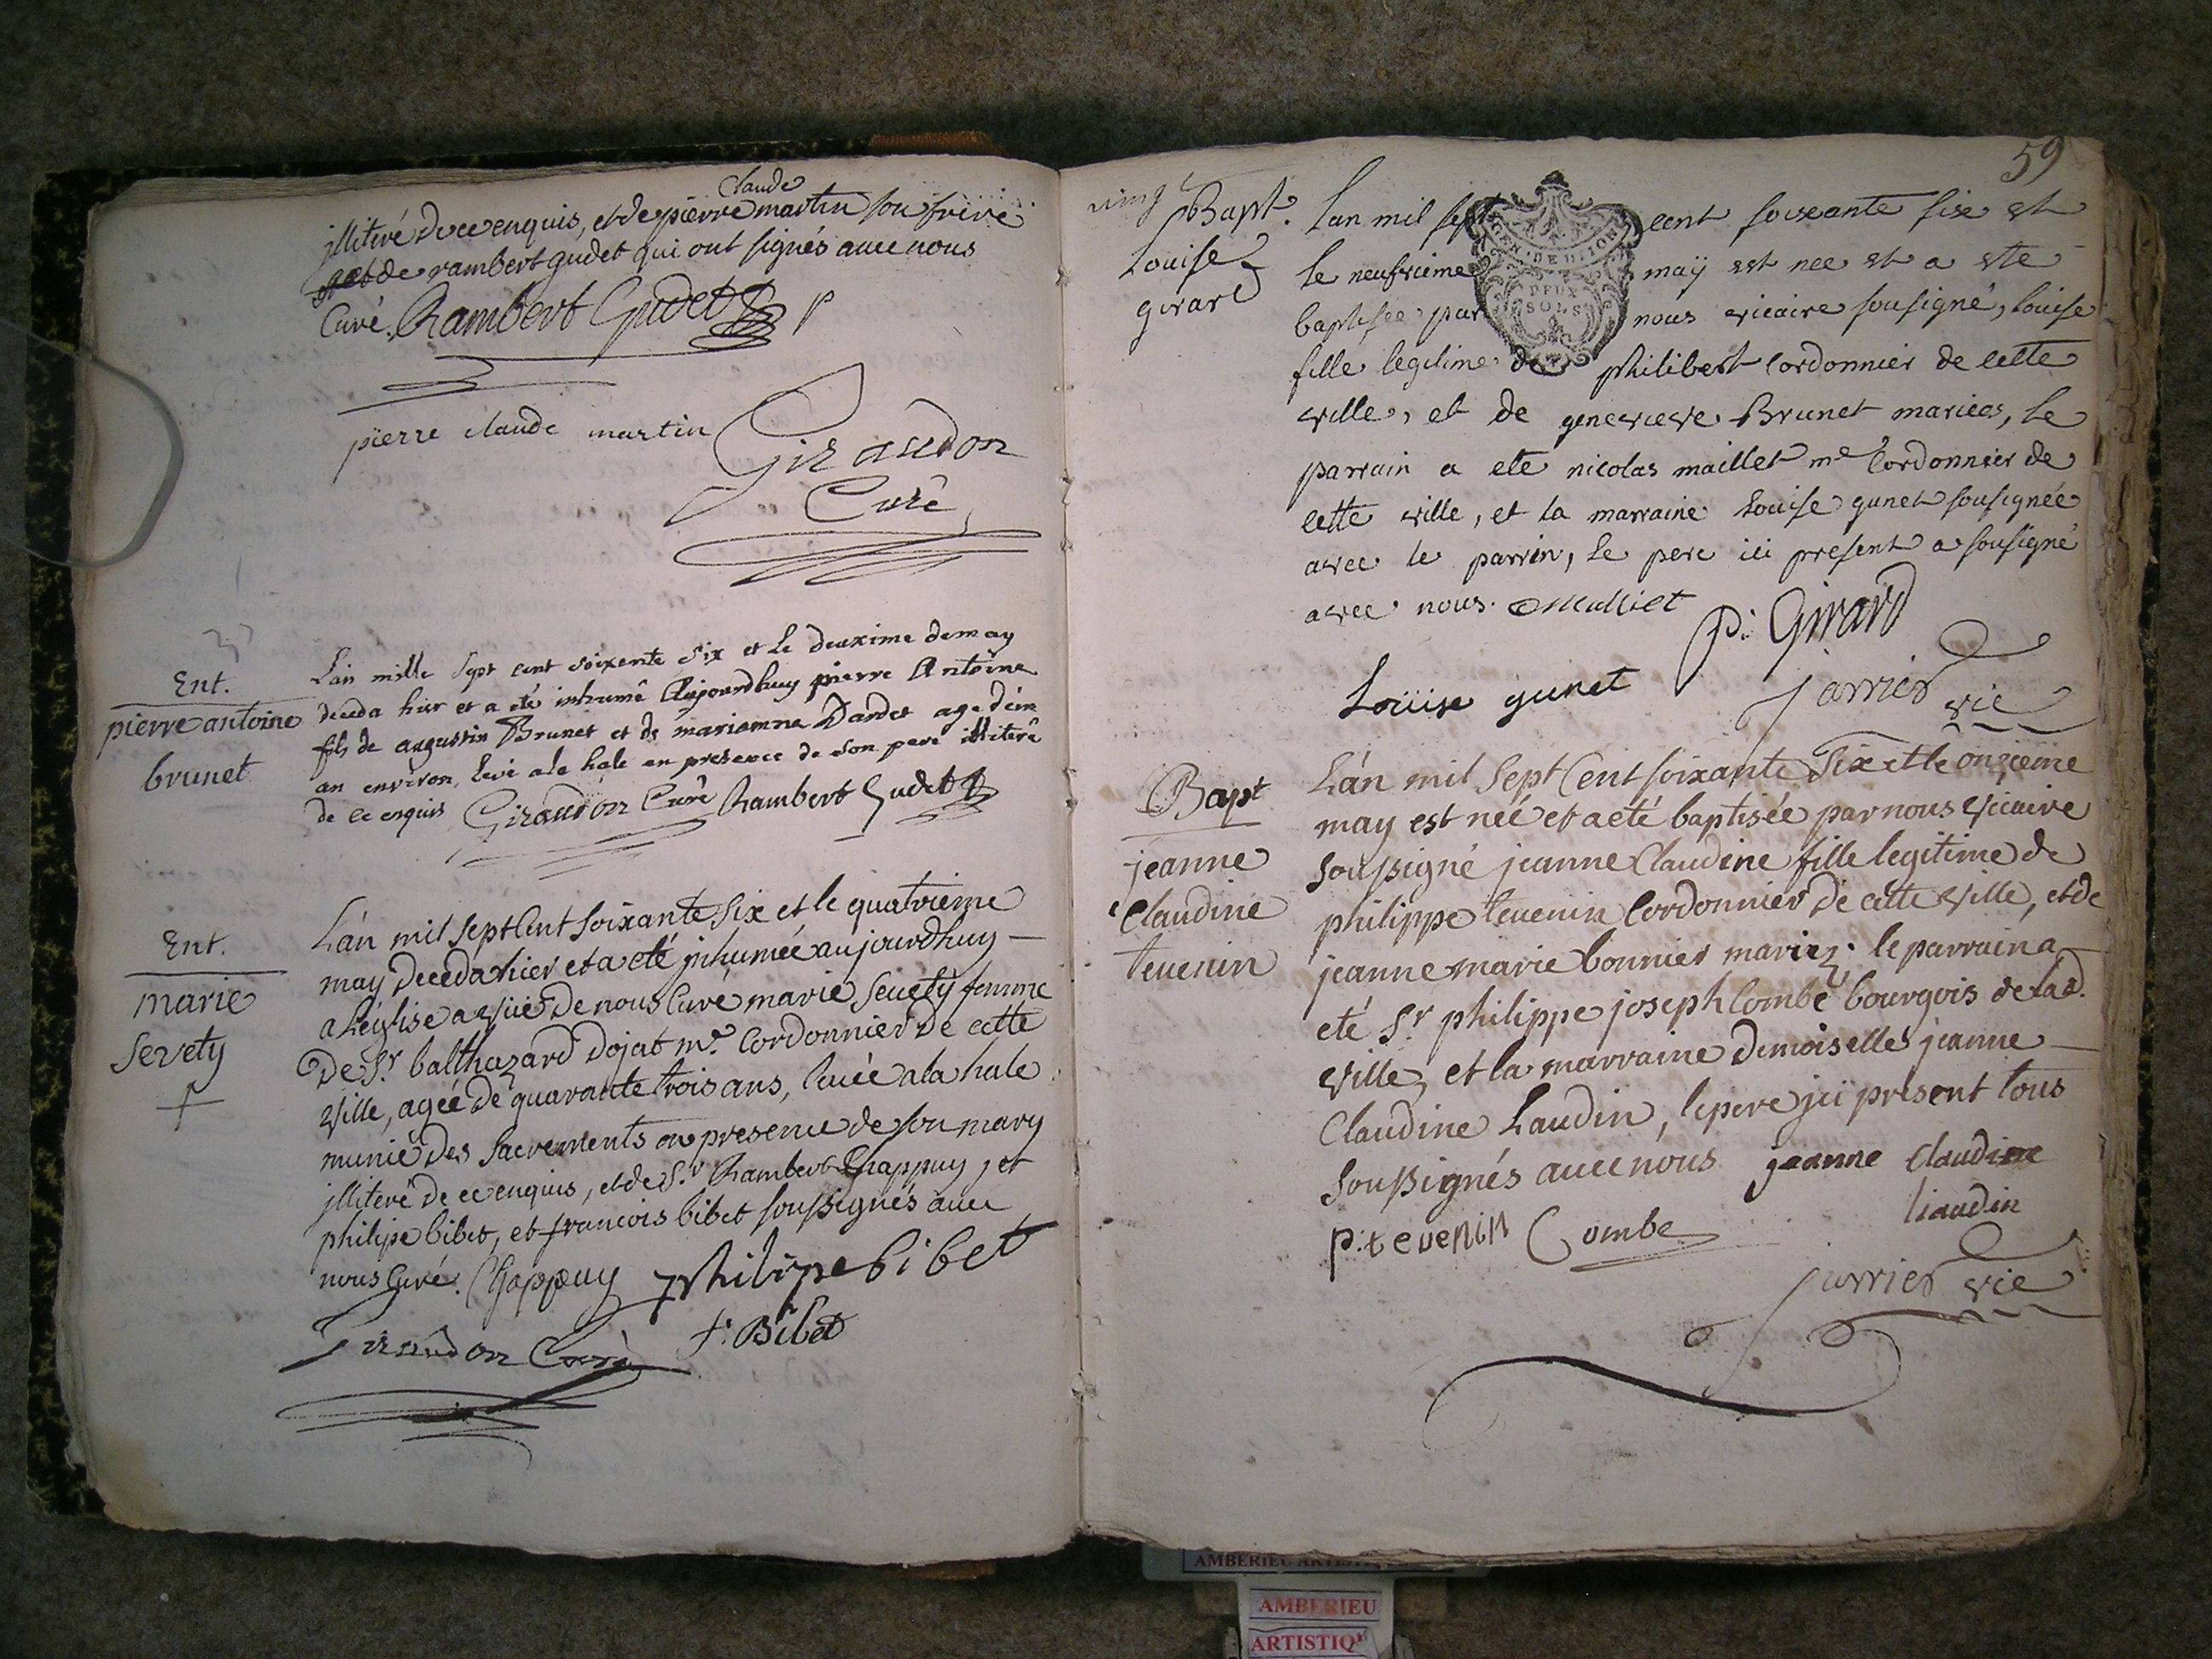 Claude
jlliteré de ce enquis, et de pierre martin son frere
et de rambert gudet qui ont signés avec nous
Curé. Rambert Gudet
pierre claude martin
Giraudon
Curé
Ent.
pierre antoine
brunet
L'an mille sept cent soixente six et le deuxime de may
deceda hier et a eté inhumé Aujourdhuy pierre Antoine
fils de augustin Brunet et de marianne Dardet age d'un
an environ, levé a la hale en presence de son pere illiteré
de ce enquis Giraudon Curé Rambert Gudet
Ent.
marie
Sevety
L'an mil sept Cent soixante Six et le quatrieme
may deceda hier et a eté jnhumée aujourdhuy
a L'eglise a vüe De nous Curé marie Sevety femme
De Sr. balthazard Dojat me. Cordonnier De cette
ville, agée De quarante trois ans, levée a la hale
munie des Sacrements en presence de son mary
jlliteré de ce enquis, et de Sr. Rambert Chappuy, et
philipe bibet, et francois bibet soussignés avec
nous Curé. Chappuy philipe bibet
Giraudon Curé f: Bibet
59
Bapt.
Louise
girard
Lan mil sept cent soixante six et
le neufvieme may est nee et a ete
baptisee par nous vicaire sousigné, louise
fille legitime de philibert Cordonnier de cette
ville, et de genevieve Brunet mariees, le
parrain a ete nicolas maillet me Cordonnier de
cette ville, et la marraine Louise gunet sousignée
avec le parrin, le pere ici present a sousigné
avec nous. Malliet P: Girard
Louise gunet Jarrier vic
GEN. DE DIJON
DEUX
SOLS
Bapt
jeanne
Claudine
tevenin
L'an mil Sept Cent soixante Six et le onzieme
may est née et a eté baptisée par nous vicaire
Soussigné jeanne Claudine fille legitime de
philippe tevenin Cordonnier de cette ville, et de
jeanne marie bonnier mariez; le parrain a
eté Sr philippe joseph Combe bourgois de lad.
ville, et la marraine demoiselle jeanne
Claudine Laudin, le pere jci present tous
Soussignés avec nous jeanne claudine
liaudin
p: tevenin Combe
Jarrier vic
AMBERIEU
AMBERIEU
ARTISTIQ